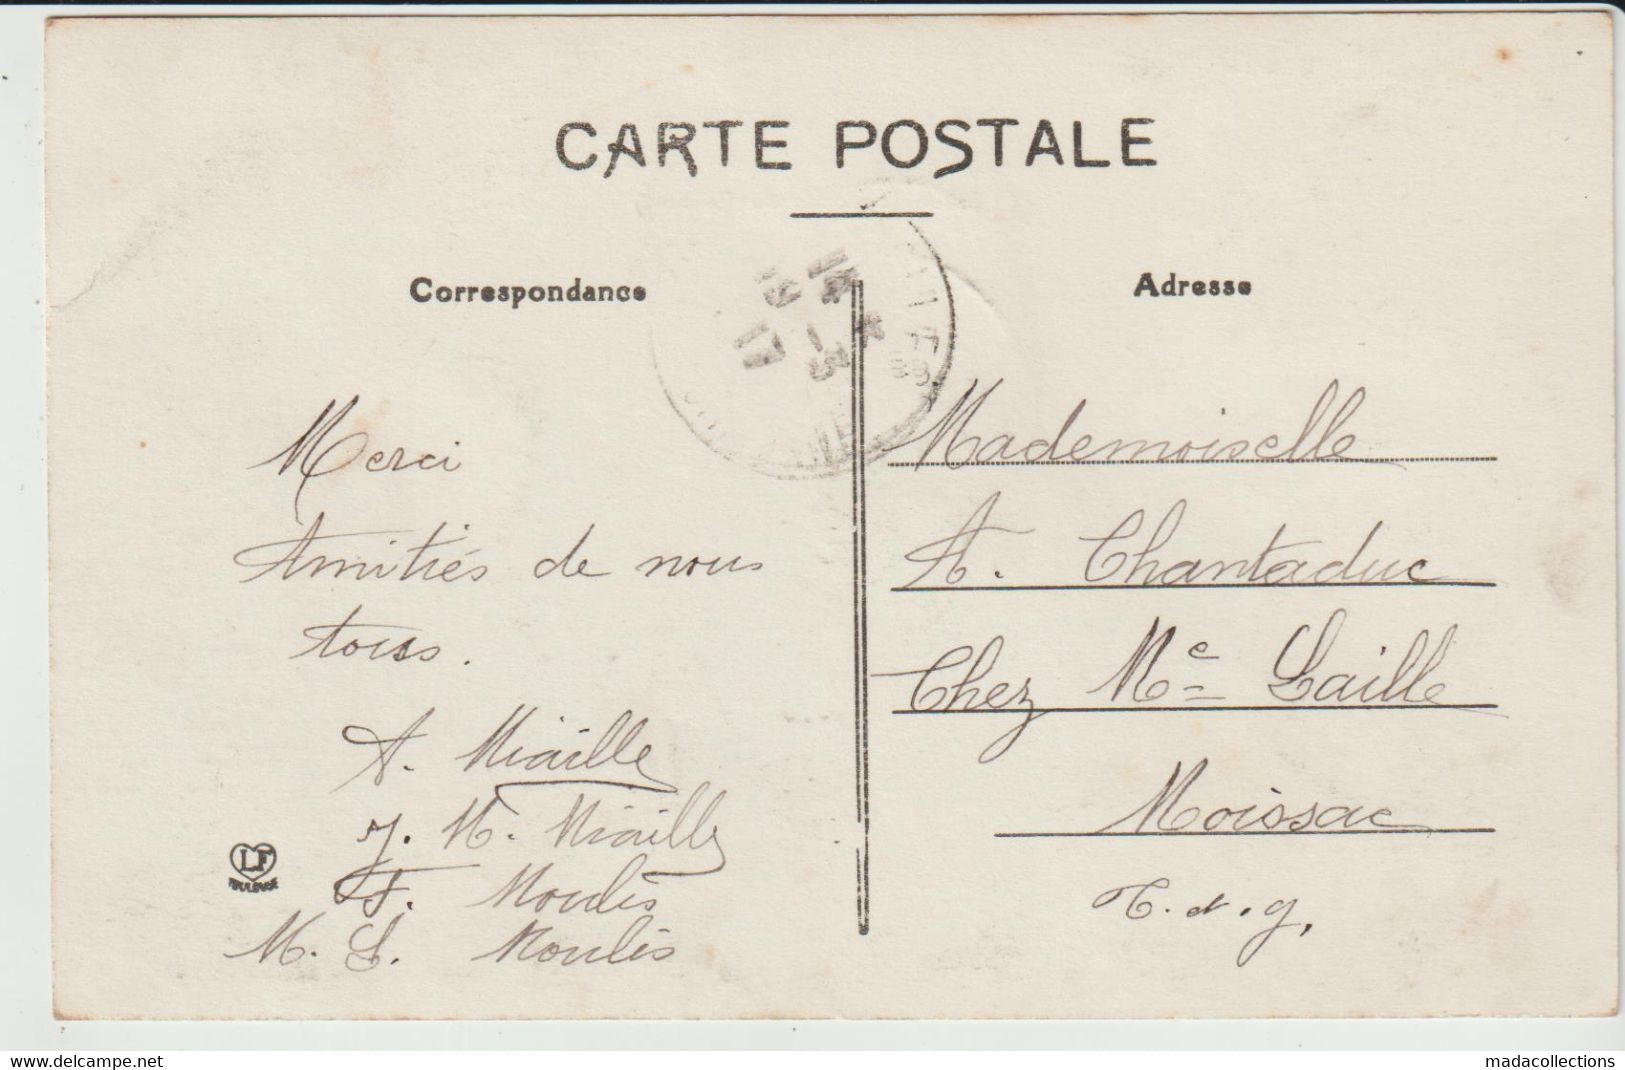 CARTE POSTALE
Correspondance
Adresse
14
19 - 5
17
Merci
Amitiés de nous
tous.
A. Miaille
J. M. Miaille
F. Moulis
M. L. Moulis
LF
TOULOUSE
Mademoiselle
A. Chantaduc
Chez Me Laille
Moissac
T. et. g.
www.delcampe.net
madacollections